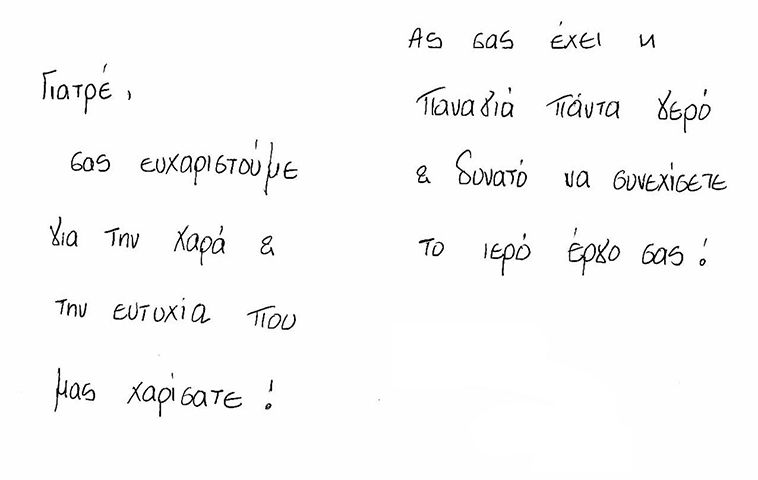 Γιατρέ,
σας ευχαριστούμε
για την χαρά &
την ευτυχία που
μας χαρίσατε!
Ας σας έχει η
Παναγιά πάντα γερό
& δυνατό να συνεχίσετε
το ιερό έργο σας!